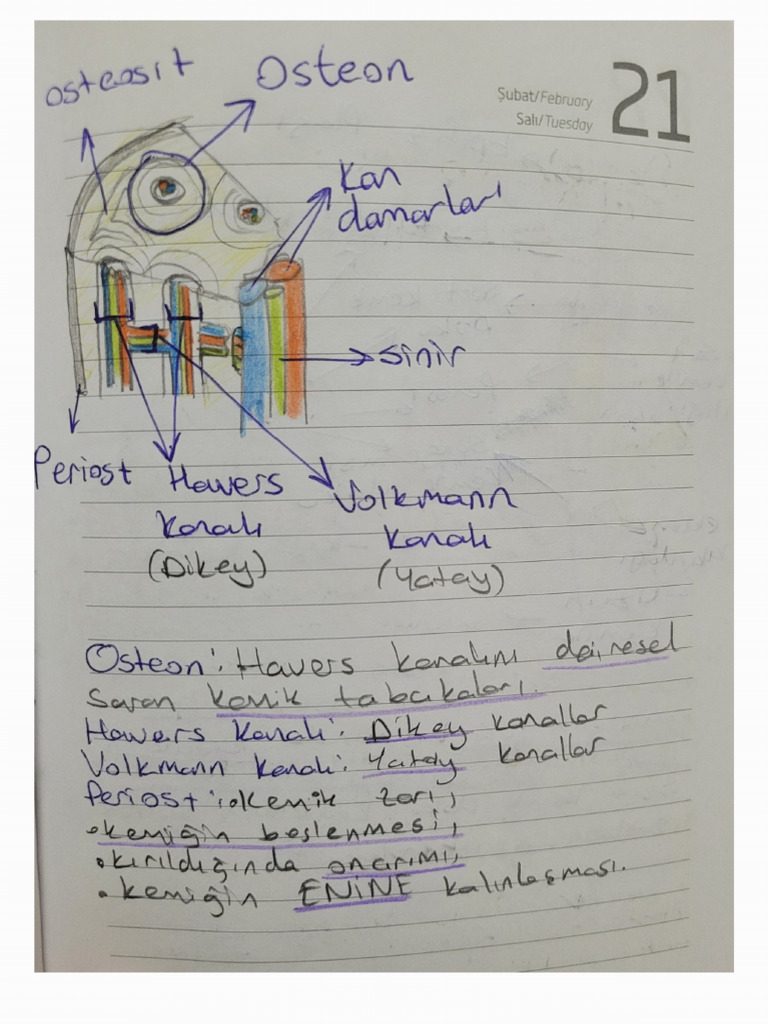 osteosit
Osteon
Şubat/February
Salı/Tuesday
21
Kan
damarları
sinir
Periost
Havers
Kanalı
(Dikey)
Volkmann
Kanalı
(Yatay)
Osteon: Havers kanalını dairesel
saran kemik tabakaları.
Havers Kanalı: Dikey kanallar
Volkmann kanalı: Yatay kanallar
Periost: •Kemik zarı,
•kemiğin beslenmesi,
•kırıldığında onarımı,
•kemiğin ENİNE kalınlaşması.